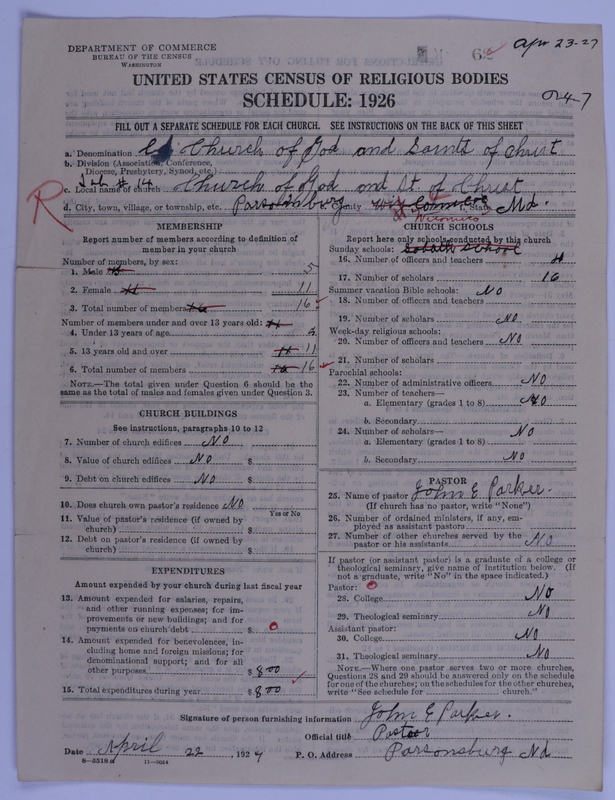 DEPARTMENT OF COMMERCE
BUREAU OF THE CENSUS
WASHINGTON
62
Apr 23-27
UNITED STATES CENSUS OF RELIGIOUS BODIES
SCHEDULE: 1926
4-7
FILL OUT A SEPARATE SCHEDULE FOR EACH CHURCH. SEE INSTRUCTIONS ON THE BACK OF THIS SHEET
a. Denomination Church of God and Saints of Christ
b. Division (Association, Conference,
Diocese, Presbytery, Synod, etc.)
Tab # 14
c. Local name of church Church of God and St. of Christ
R
d. City, town, village, or township, etc. Parsonsburg County Wicomico State Md.
MEMBERSHIP
Report number of members according to definition of
member in your church
Number of members, by sex:
1. Male 5
2. Female 11 11
3. Total number of members 16 16
Number of members under and over 13 years old:
4. Under 13 years of age 5
5. 13 years old and over 11 11
6. Total number of members 16
NOTE.—The total given under Question 6 should be the
same as the total of males and females given under Question 3.
CHURCH BUILDINGS
See instructions, paragraphs 10 to 12
7. Number of church edifices NO
8. Value of church edifices NO $
9. Debt on church edifices NO $
10. Does church own pastor's residence NO
Yes or No
11. Value of pastor's residence (if owned by
church) $
12. Debt on pastor's residence (if owned by
church) $
EXPENDITURES
Amount expended by your church during last fiscal year
13. Amount expended for salaries, repairs,
and other running expenses; for im-
provements or new buildings; and for
payments on church debt $ 0
14. Amount expended for benevolences, in-
cluding home and foreign missions; for
denominational support; and for all
other purposes $ 8 00
15. Total expenditures during year $ 8 00
CHURCH SCHOOLS
Report here only schools conducted by this church
Sunday schools: Sabath School
16. Number of officers and teachers 4
17. Number of scholars 16
Summer vacation Bible schools: NO
18. Number of officers and teachers
19. Number of scholars NO
Week-day religious schools:
20. Number of officers and teachers NO
21. Number of scholars
Parochial schools:
22. Number of administrative officers NO
23. Number of teachers—
a. Elementary (grades 1 to 8) NO
b. Secondary
24. Number of scholars— NO
a. Elementary (grades 1 to 8)
b. Secondary NO
PASTOR
25. Name of pastor John E Parker.
(If church has no pastor, write "None")
26. Number of ordained ministers, if any, em-
ployed as assistant pastors
27. Number of other churches served by the
pastor or his assistants NO
If pastor (or assistant pastor) is a graduate of a college or
theological seminary, give name of institution below. (If
not a graduate, write "No" in the space indicated.)
Pastor: 0
28. College No
29. Theological seminary No
Assistant pastor:
30. College No
31. Theological seminary No
NOTE.—Where one pastor serves two or more churches,
Questions 28 and 29 should be answered only on the schedule
for one of the churches; on the schedules for the other churches,
write "See schedule for church."
Signature of person furnishing information John E Parker.
Official title Pastor
Date April 22, 1927 P. O. Address Parsonsburg Md
8-5518a 11-9024